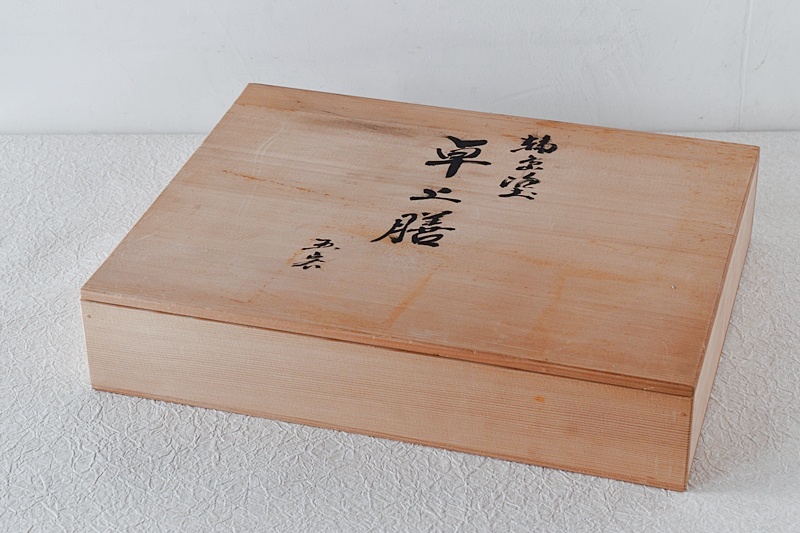 輪島塗
卓上膳
五客